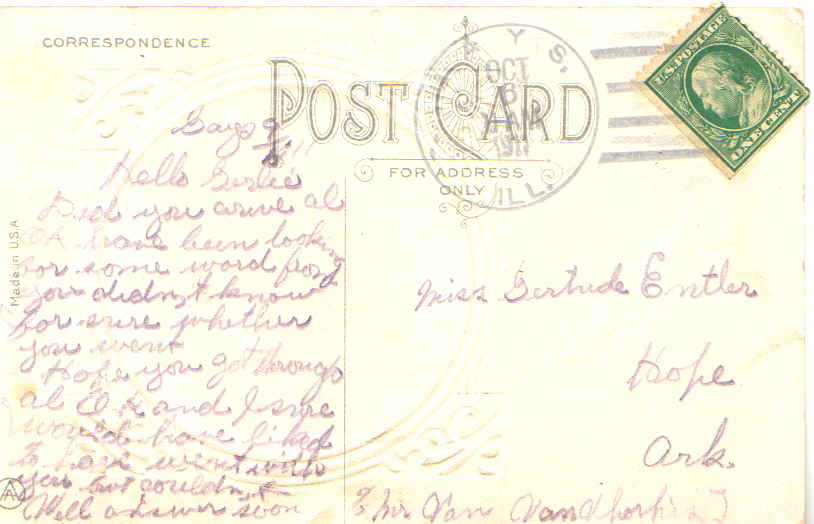 CORRESPONDENCE
POST CARD
FOR ADDRESS
ONLY
GAYS, ILL.
OCT
6
AM
1911
U.S. POSTAGE
ONE CENT
Made in U.S.A
Gays 9/ 11
Hello Gertie
Did you arive al
OK have been looking
for some word from
you didn,t know
for sure whether
you went
Hope you got through
al OK and I sure
would have liked
to have went with
you but couldn,t
Well answer soon
Miss Gertrude Entler
Hope
Ark.
% Mr Van